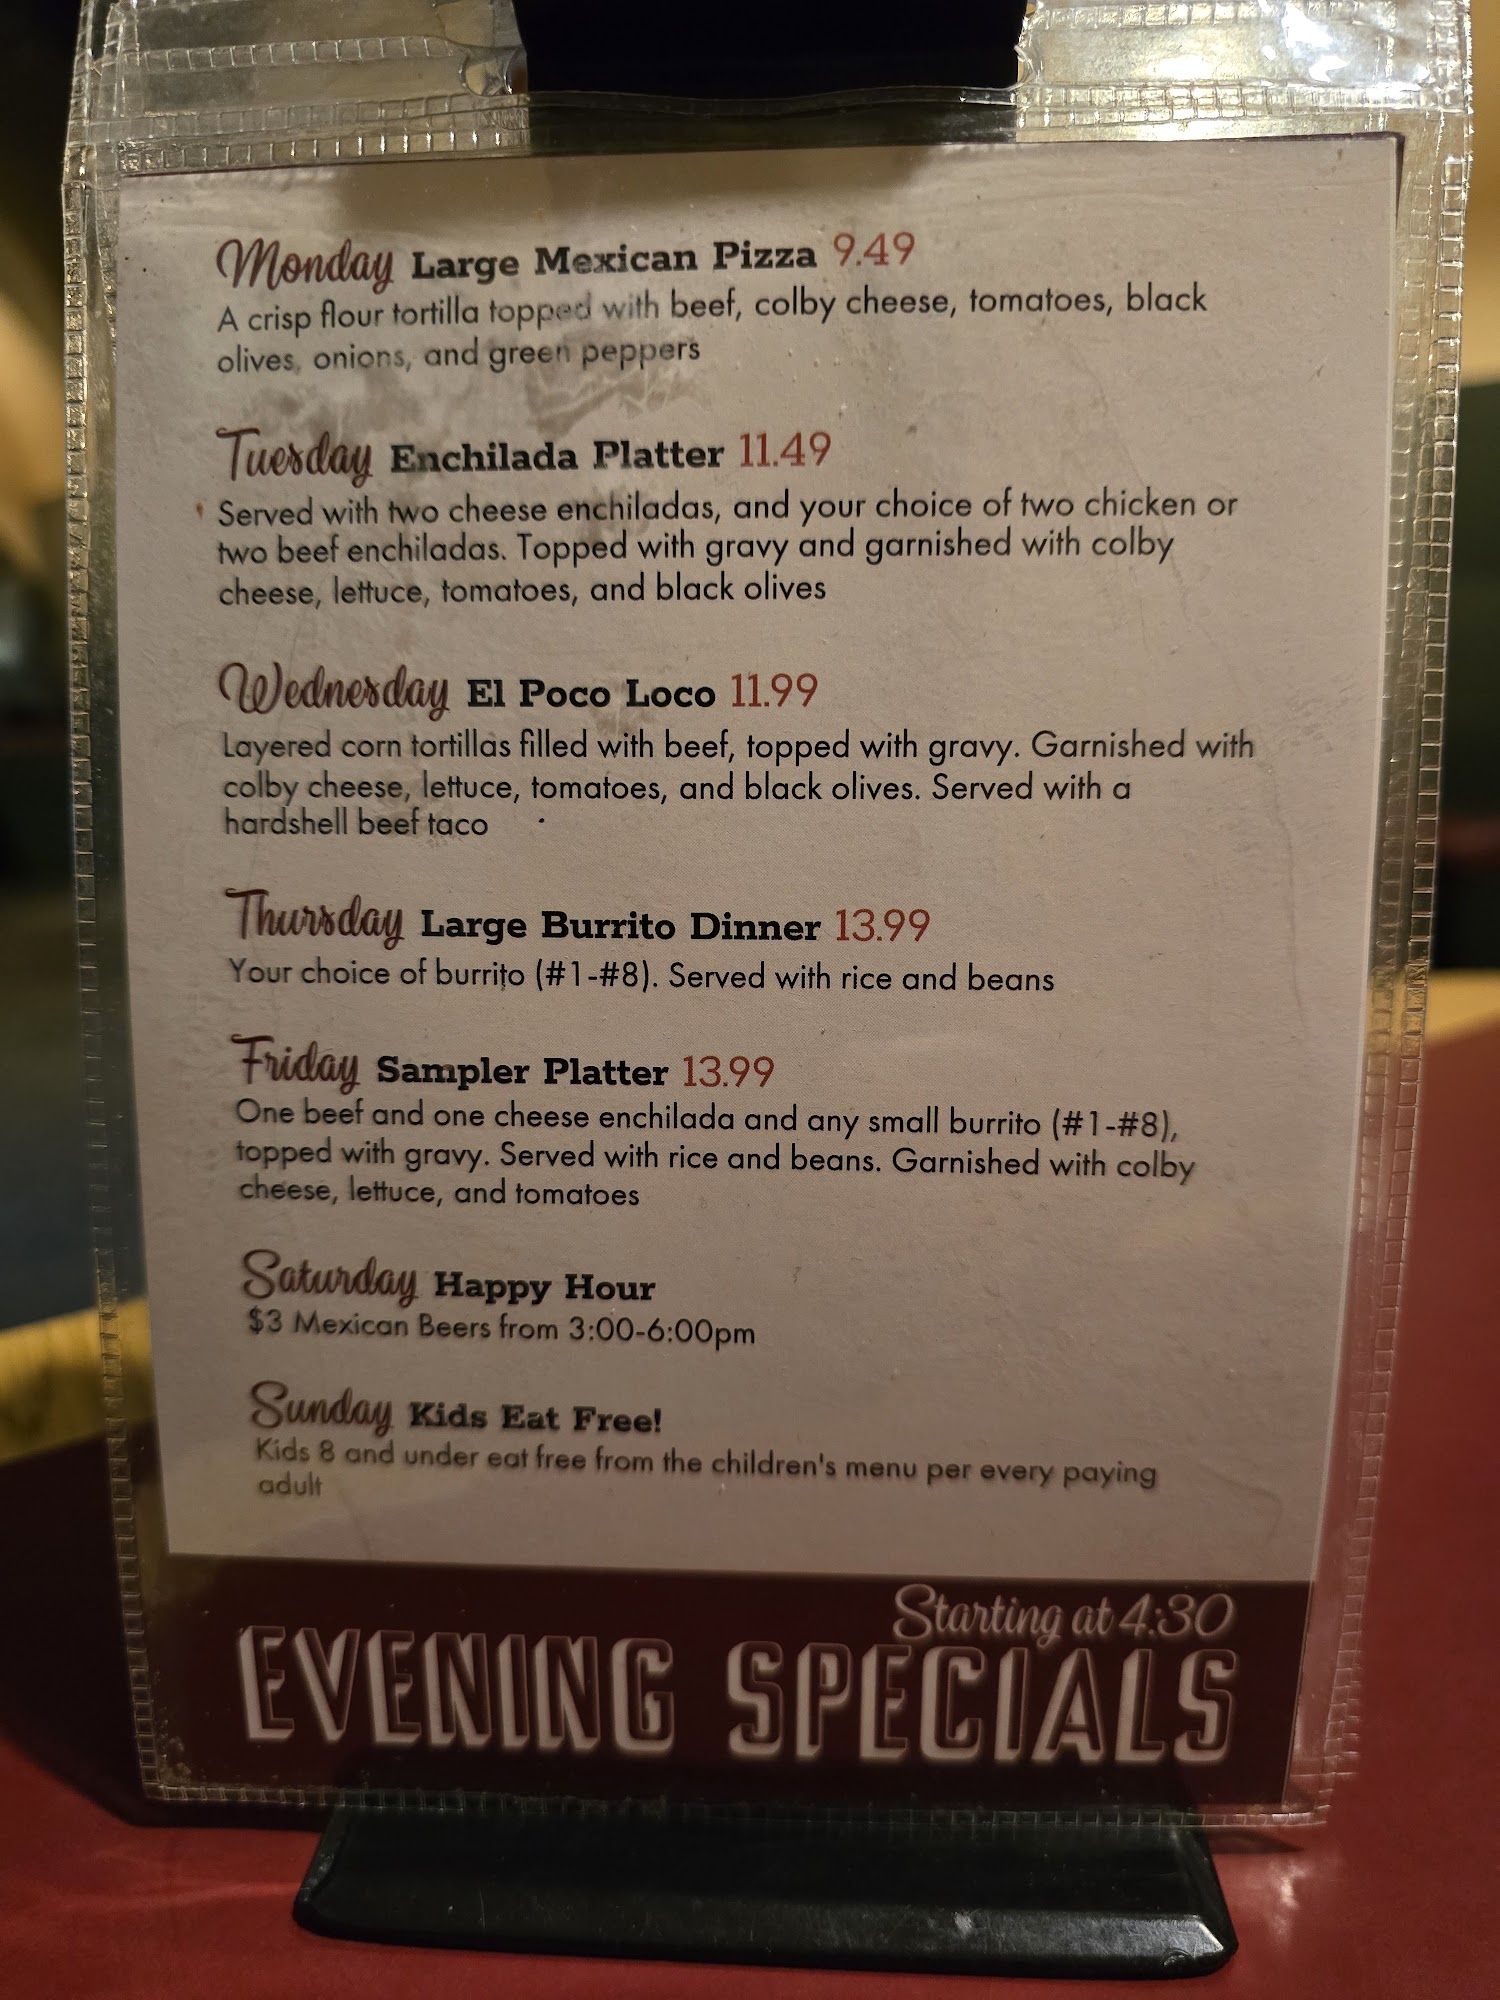 Monday Large Mexican Pizza 9.49
A crisp flour tortilla topped with beef, colby cheese, tomatoes, black
olives, onions, and green peppers
Tuesday Enchilada Platter 11.49
Served with two cheese enchiladas, and your choice of two chicken or
two beef enchiladas. Topped with gravy and garnished with colby
cheese, lettuce, tomatoes, and black olives
Wednesday El Poco Loco 11.99
Layered corn tortillas filled with beef, topped with gravy. Garnished with
colby cheese, lettuce, tomatoes, and black olives. Served with a
hardshell beef taco
Thursday Large Burrito Dinner 13.99
Your choice of burrito (#1-#8). Served with rice and beans
Friday Sampler Platter 13.99
One beef and one cheese enchilada and any small burrito (#1-#8),
topped with gravy. Served with rice and beans. Garnished with colby
cheese, lettuce, and tomatoes
Saturday Happy Hour
$3 Mexican Beers from 3:00-6:00pm
Sunday Kids Eat Free!
Kids 8 and under eat free from the children's menu per every paying
adult
Starting at 4:30
EVENING SPECIALS